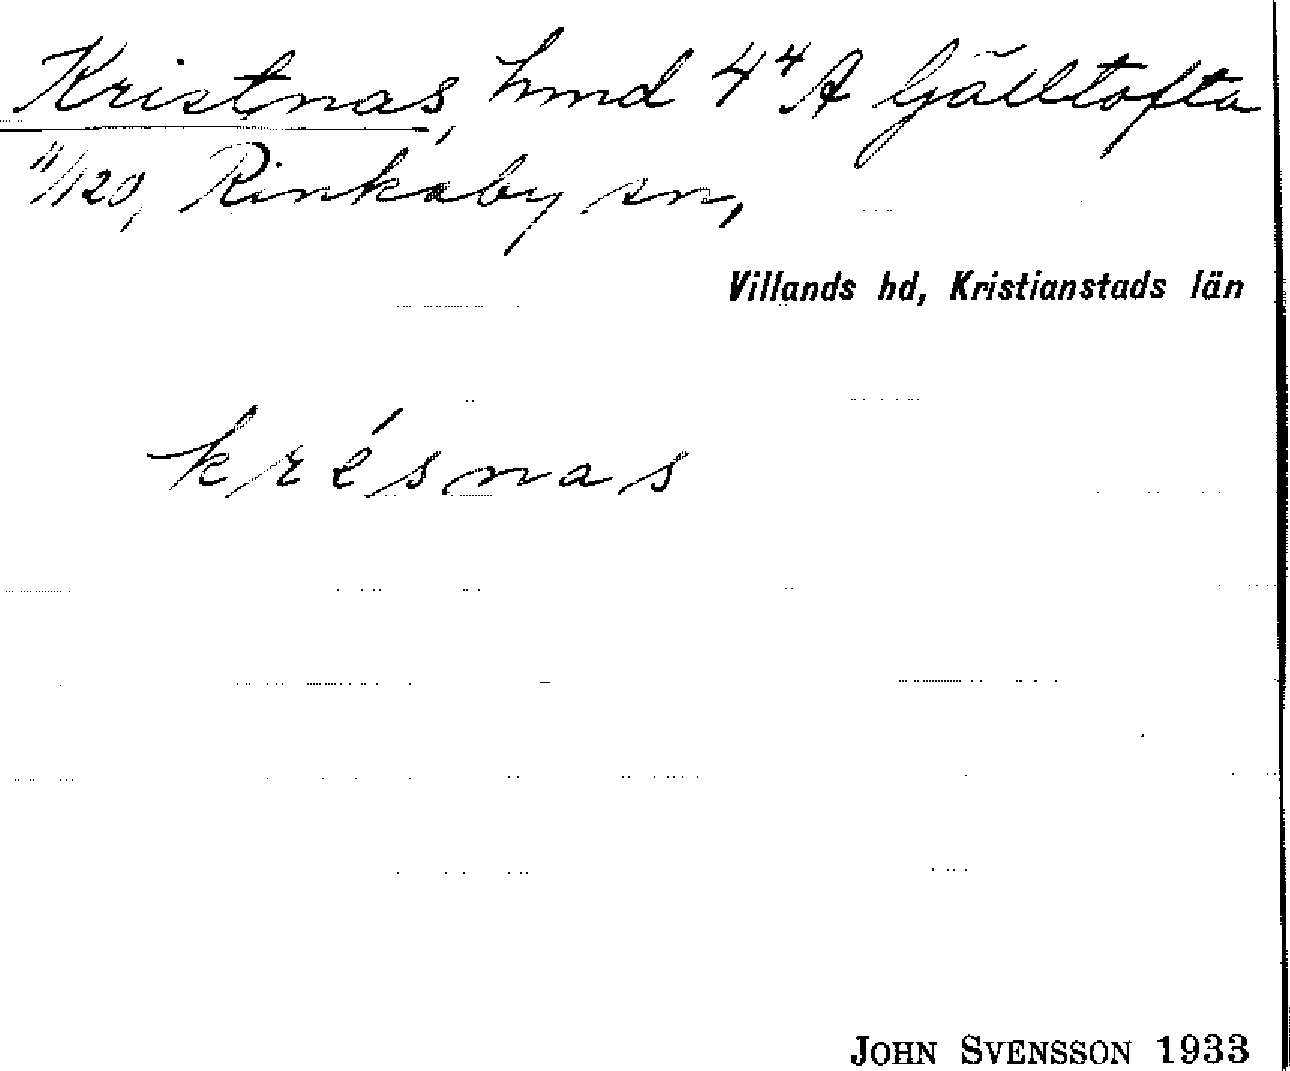 Kristnas, hmd 4⁴ A Gälltofta
11/120, Rinkaby sn,
Villands hd, Kristianstads län
krésnas
JOHN SVENSSON 1933